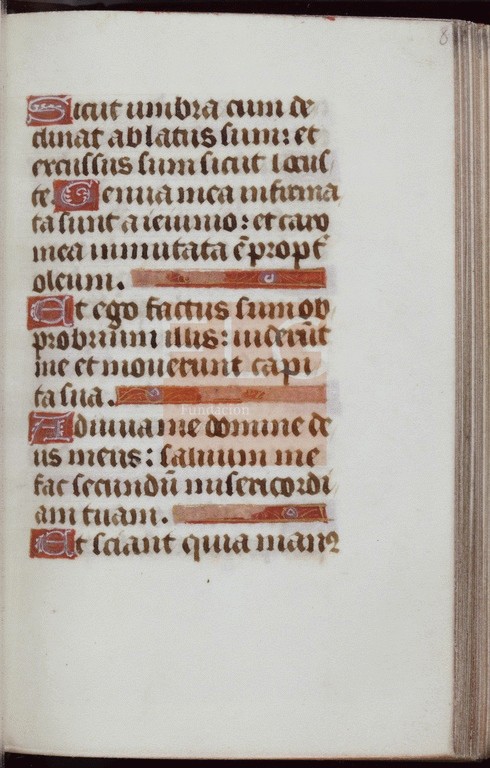 8
Sicut umbra cum de
clinat ablatus sum: et
excussus sum sicut locus
te. Genua mea infirma
ta sunt a ieiunio: et caro
mea inmutata ē propt̄
oleum.
Et ego factus sum ob
probrium illis: uiderūt
me et mouerunt capi
ta sua.
Fundación
Adiuua me domine de
us meus: saluum me
fac secundū misericordi
am tuam.
Et sciant quia manꝰ